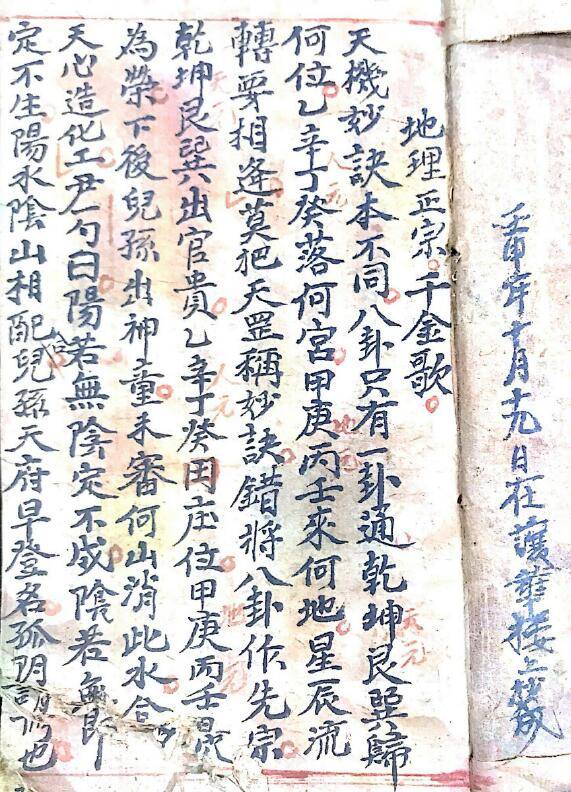 壬申年十月十九日在護華樓上
地理正宗。千金歌。
天機妙訣本不同。八卦只有一卦通乾坤艮巽歸
天元
何位。乙辛丁癸落何宮。甲庚丙壬來何地。星辰流
人元
地元
轉要相逢。莫把天罡稱妙訣。錯將八卦作先宗。
乾坤艮巽出官貴。乙辛丁癸田庄位。甲庚丙壬
天元
人元
地元
為榮。下後兒孫出神童。未審何山消此水。合
天心造化工。曰陽若無陰定不成。陰若無
定不生。陽水陰山相配合兒孫天府早登名。孤陰也